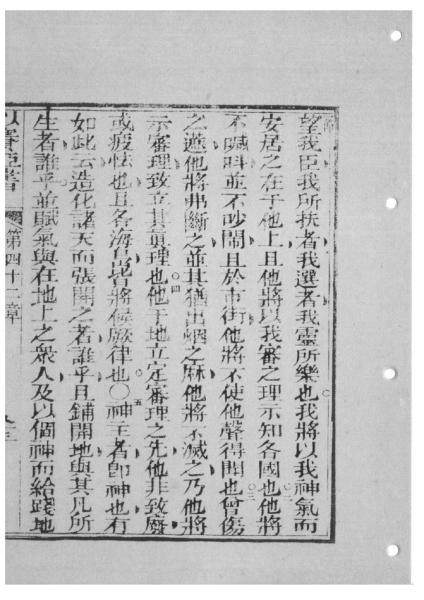 望我臣我所扶者我選者我靈所樂也我將以我神氣而
安居之在于他上且他將以我審之理示知各國也他將
不喊呌並不吵鬧且於市街他將不使他聲得聞也曾傷
之葦他將弗斷之並其猶出烟之麻他將不滅之乃他將
示審理致立其眞理也他于地立定審理之先他非致廢
或疲怯也且各海島皆將候厥律也〇神主者卽神也有
如此云造化諸天而張開之者誰乎且鋪開地與其凡所
生者誰乎並賦氣與在地上之衆人及以個神而給踐地
以賽亞書 第四十二章